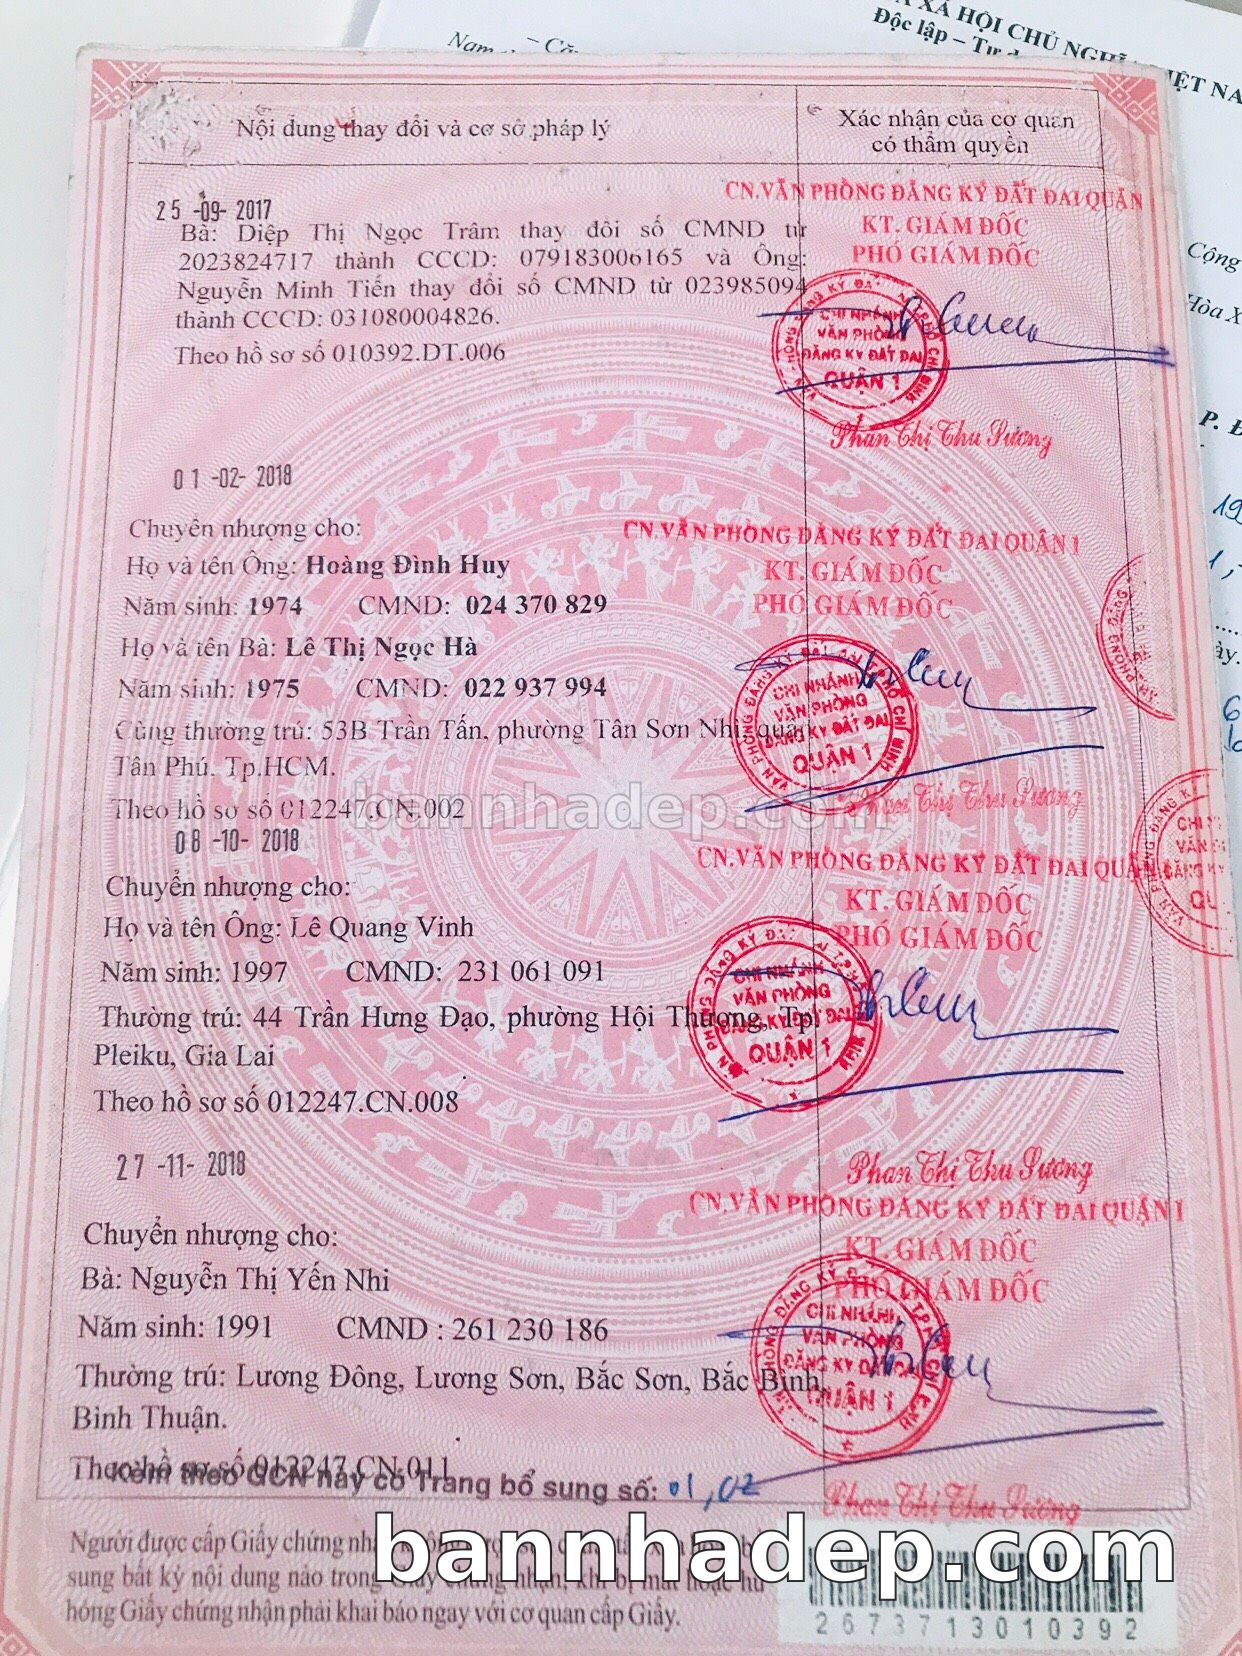 XÃ HỘI CHỦ NGHĨA VIỆT NA
Độc lập – Tự
Nam
Nội dung thay đổi và cơ sở pháp lý
Xác nhận của cơ quan
có thẩm quyền
25 -09- 2017
Bà: Diệp Thị Ngọc Trâm thay đổi số CMND từ
2023824717 thành CCCD: 079183006165 và Ông:
Nguyễn Minh Tiến thay đổi số CMND từ 023985094
thành CCCD: 031080004826.
Theo hồ sơ số 010392.DT.006
CN.VĂN PHÒNG ĐĂNG KÝ ĐẤT ĐAI QUẬN
KT. GIÁM ĐỐC
PHÓ GIÁM ĐỐC
CHI NHÁNH
VĂN PHÒNG
ĐĂNG KÝ ĐẤT ĐAI
QUẬN 1
Phan Thị Thu Sương
Cộng
Hòa X
P. Đ
01 -02- 2018
Chuyển nhượng cho:
Họ và tên Ông: Hoàng Đình Huy
Năm sinh: 1974 CMND: 024 370 829
Họ và tên Bà: Lê Thị Ngọc Hà
Năm sinh: 1975 CMND: 022 937 994
Cùng thường trú: 53B Trần Tấn, phường Tân Sơn Nhì, quận
Tân Phú, Tp.HCM.
Theo hồ sơ số 012247.CN.002
CN.VĂN PHÒNG ĐĂNG KÝ ĐẤT ĐAI QUẬN 1
KT. GIÁM ĐỐC
PHÓ GIÁM ĐỐC
CHI NHÁNH
VĂN PHÒNG
ĐĂNG KÝ ĐẤT ĐAI
QUẬN 1
Phan Thị Thu Sương
bannhadep.com
08 -10- 2018
Chuyển nhượng cho:
Họ và tên Ông: Lê Quang Vinh
Năm sinh: 1997 CMND: 231 061 091
Thường trú: 44 Trần Hưng Đạo, phường Hội Thương, Tp
Pleiku, Gia Lai
Theo hồ sơ số 012247.CN.008
CN.VĂN PHÒNG ĐĂNG KÝ ĐẤT ĐAI QUẬN
KT. GIÁM ĐỐC
PHÓ GIÁM ĐỐC
CHI NHÁNH
VĂN PHÒNG
ĐĂNG KÝ ĐẤT ĐAI
QUẬN 1
Phan Thị Thu Sương
27 -11- 2018
Chuyển nhượng cho:
Bà: Nguyễn Thị Yến Nhi
Năm sinh: 1991 CMND : 261 230 186
Thường trú: Lương Đông, Lương Sơn, Bắc Sơn, Bắc Bình,
Bình Thuận.
Theo hồ sơ số 012247.CN.011
CN.VĂN PHÒNG ĐĂNG KÝ ĐẤT ĐAI QUẬN 1
KT. GIÁM ĐỐC
PHÓ GIÁM ĐỐC
CHI NHÁNH
VĂN PHÒNG
ĐĂNG KÝ ĐẤT ĐAI
QUẬN 1
Phan Thị Thu Sương
Kèm theo GCN này có Trang bổ sung số: 01, 02
Người được cấp Giấy chứng nhận
sung bất kỳ nội dung nào trong Giấy chứng nhận; khi bị mất hoặc hư
hỏng Giấy chứng nhận phải khai báo ngay với cơ quan cấp Giấy.
bannhadep.com
267371301039​2